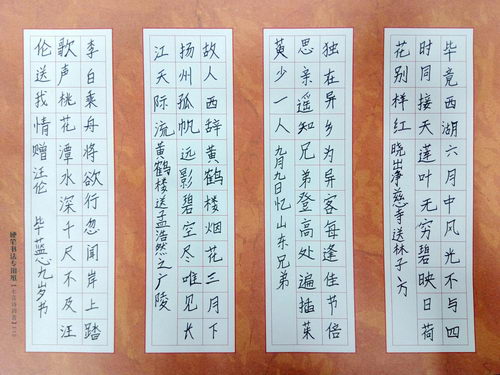 毕竟西湖六月中风光不与四
时同接天莲叶无穷碧映日荷
花别样红 晓出净慈寺送林子方
独在异乡为异客每逢佳节倍
思亲遥知兄弟登高处遍插茱
萸少一人 九月九日忆山东兄弟
故人西辞黄鹤楼烟花三月下
扬州孤帆远影碧空尽唯见长
江天际流 黄鹤楼送孟浩然之广陵
李白乘舟将欲行忽闻岸上踏
歌声桃花潭水深千尺不及汪
伦送我情 赠汪伦 毕蓝心九岁书
硬笔书法专用纸